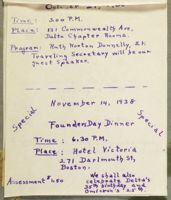 Time: 3:00 P.M.
Place: 131 Commonwealth Ave.
Delta Chapter Rooms.
Program: Ruth Norton Donnelly, Ex.
Traveling Secretary will be our
guest speaker.
November 14, 1938
Special
Special
Founders Day Dinner
Time: 6:30 P.M.
Place: Hotel Victoria
271 Dartmouth St,
Boston.
Assessment $1.50
We shall also
celebrate Delta's
35th birthday and
Omicron's 25th.